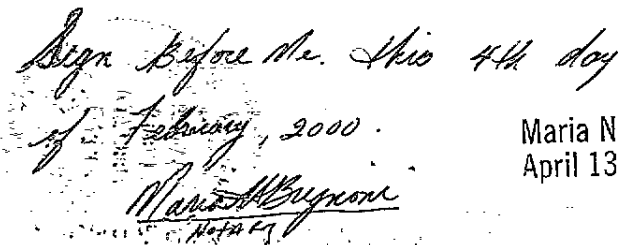 Sign Before Me. this 4th day
of February, 2000.
Maria N
April 13
Maria N
NOTARY